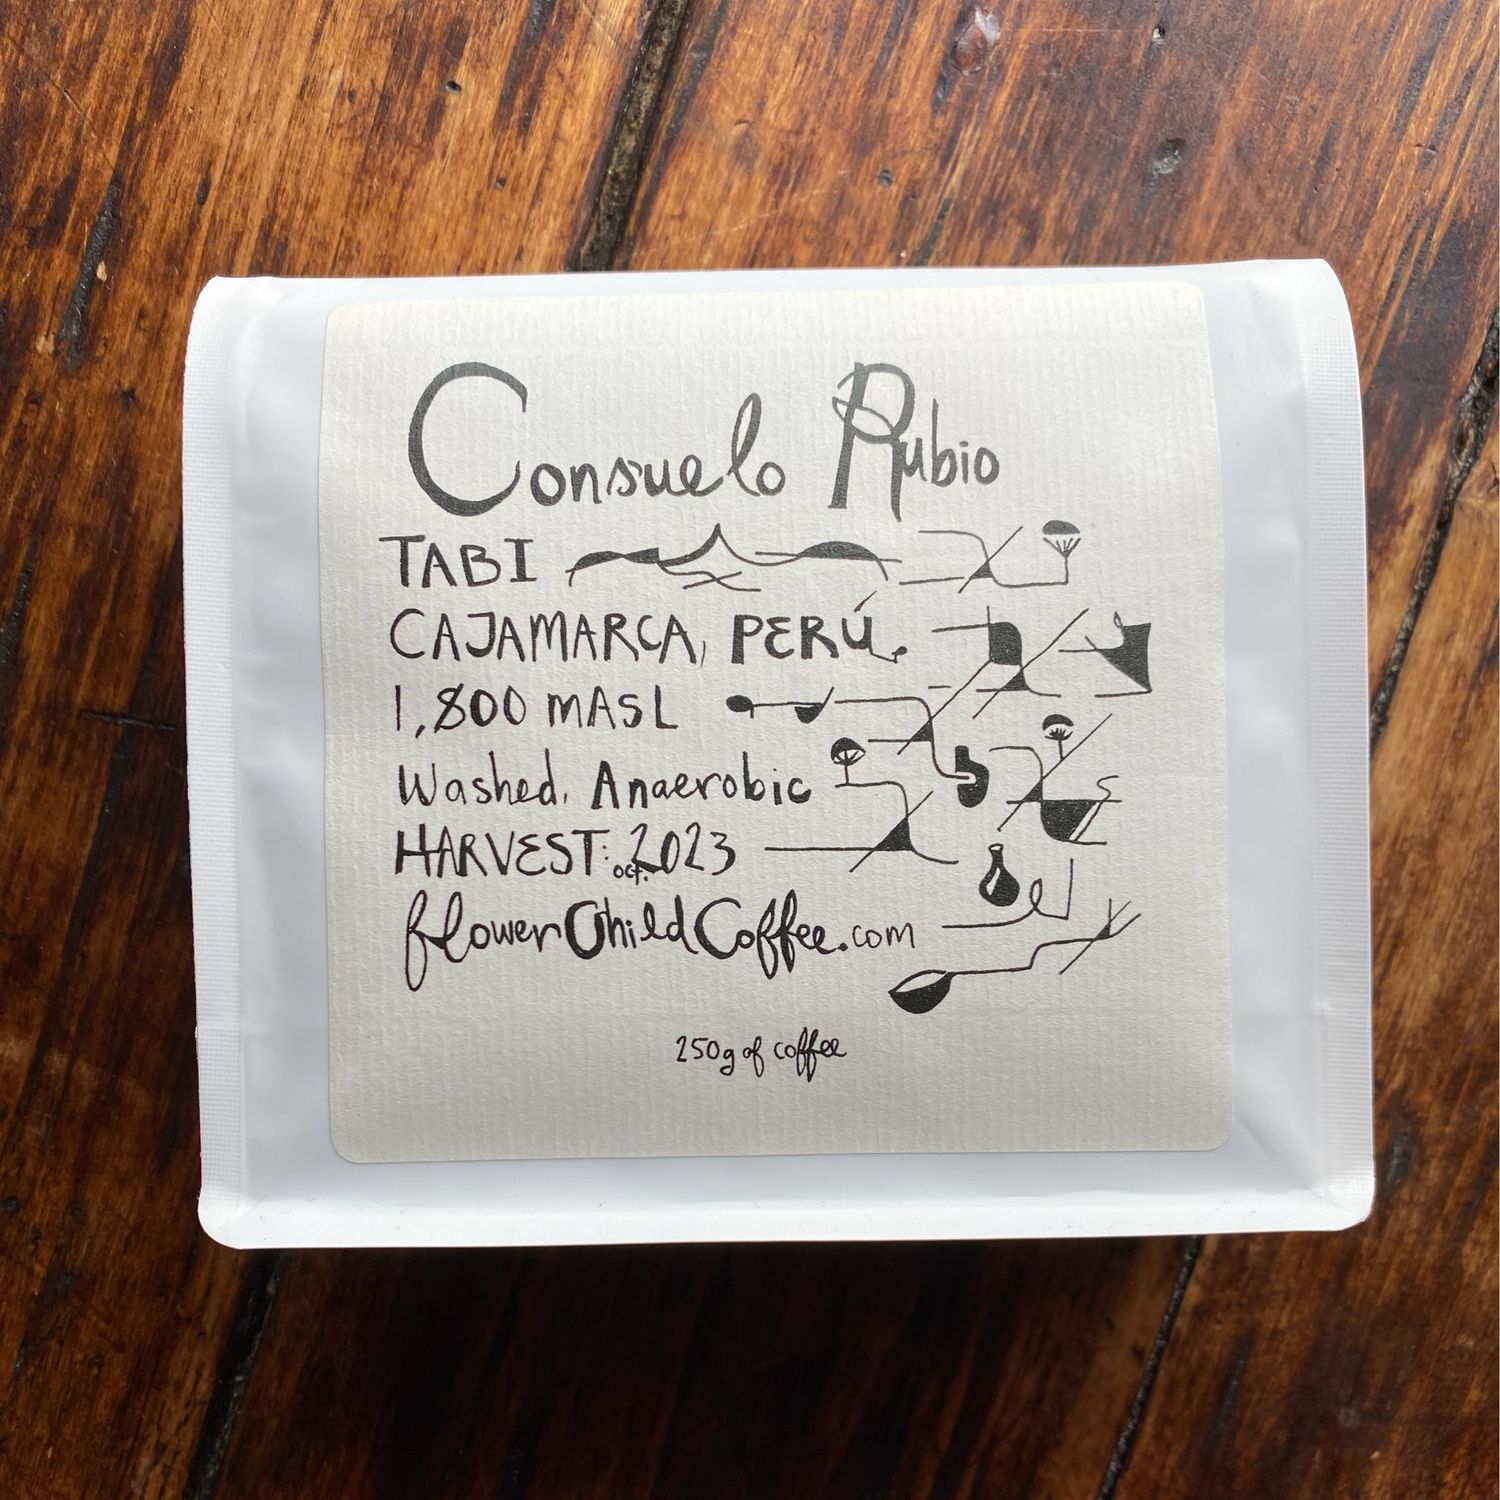 Consuelo Rubio
TABI
CAJAMARCA, PERÚ.
1,800 MASL
Washed, Anaerobic
HARVEST: oct. 2023
flowerChildCoffee.com
250g of coffee